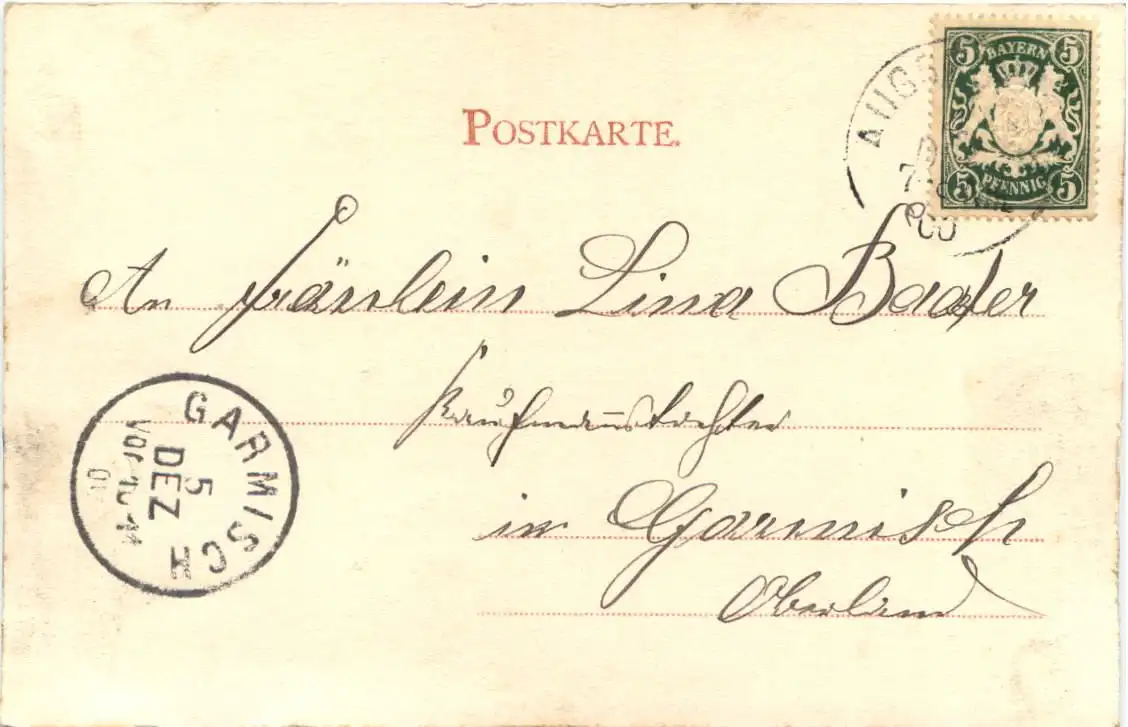 POSTKARTE.
BAYERN
5 5
5 5
PFENNIG
An Fräulein Lina Bader
Kaufmannstochter
in Garmisch
Oberland
GARMISCH
5
DEZ